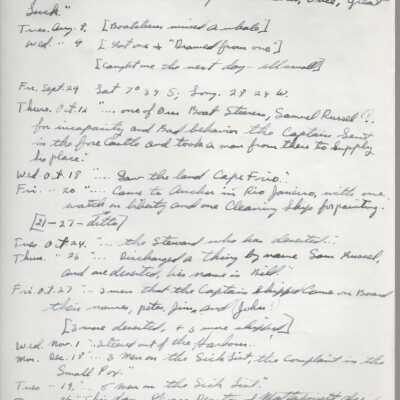 Great
Luck."
Tues. Aug. 8. [Boatsteerer missed a whale]
Wed. " 9 [Shot one & "Drawed from one"]
[Caught one the next day - all small]
Fri. Sept. 29 Lat 7° 39 S; Long. 28 24 W.
Thurs. Oct. 12 "... one of Our Boat Steerers, Samuel Russel
for incapainty and Bad behavior the Captain Sent
in the fore Castle and took a man from there to Supply
his place."
Wed Oct. 18 "... Saw the land Cape Frio."
Fri. " 20 "... Came to Anchor in Rio Janiero, with one
watch on liberty and one Cleaning Ship for painting.
[21-27 - ditto]
Tues Oct. 24. "... the Steward who has deserted..
Thurs. " 26 "... Discharged a thing by name Sam Russel,
and one deserted, his name is Bill"
Fri. Oct. 27 "... 3 men that the Captain Shipped Came on Board
their names, peter, Jim, and John."
[2 more deserted, & 3 more shipped]
Wed. Nov. 1 "... Steered out of the Harbour.
Mon. Dec. 18 "... 3 Men on the Sick List, the Complaint is the
Small Pox."
Tues - 19. "... 5 men on the Sick List."